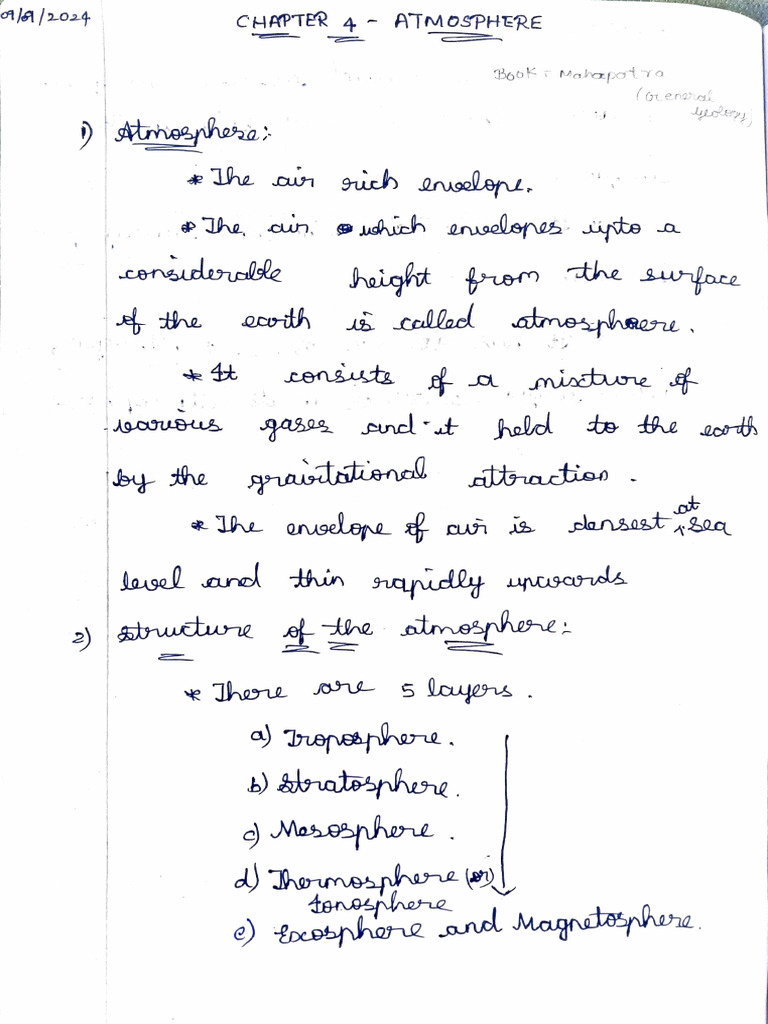 09/09/2024
CHAPTER 4 - ATMOSPHERE
Book: Mahapatra
(General
Geology)
1) Atmosphere:
* The air rich envelope.
* The air which envelopes upto a
considerable height from the surface
of the earth is called atmosphere.
* It consists of a mixture of
various gases and it held to the earth
by the gravitational attraction.
* The envelope of air is densest at sea
level and thin rapidly upwards
2) Structure of the atmosphere:
* There are 5 layers.
a) Troposphere.
b) Stratosphere.
c) Mesosphere.
d) Thermosphere (or)
Ionosphere
e) Exosphere and Magnetosphere.